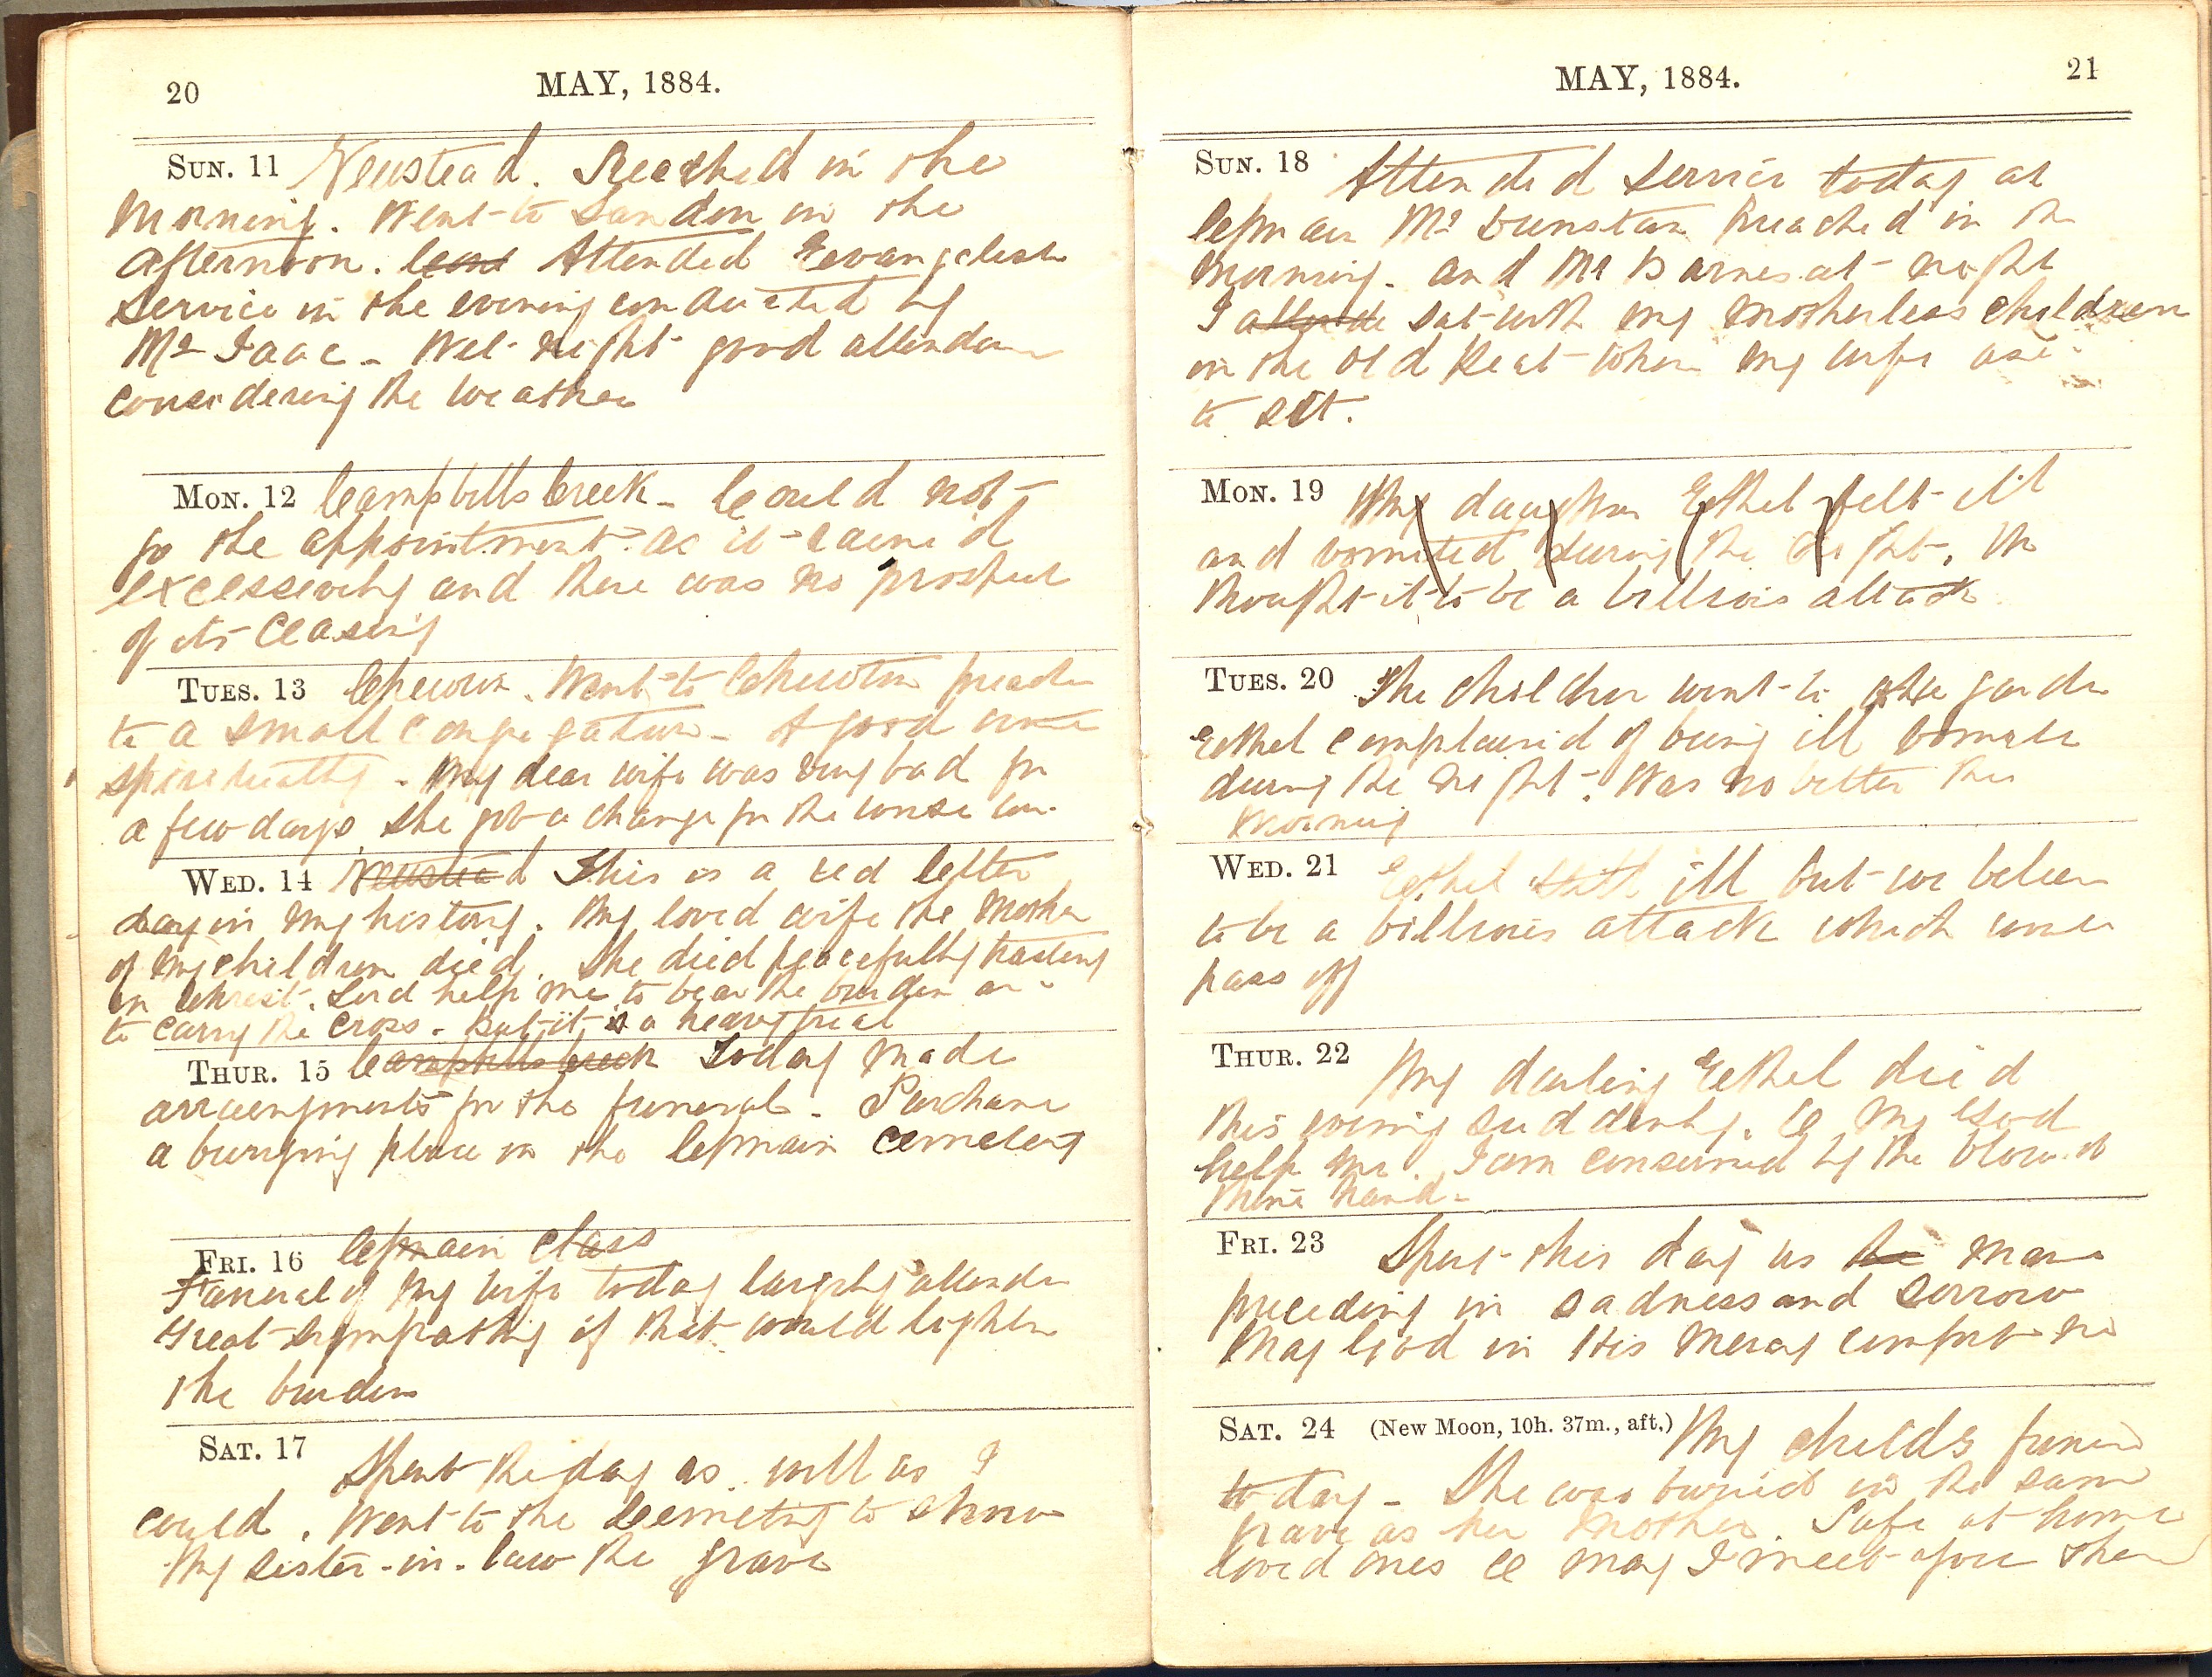 20 MAY, 1884.
SUN. 11 Newstead. Preached in the
Morning. Went to Sandon in the
afternoon. Attended Evangelist
Service in the evening conducted by
Mr Isaac - Wet night good attendance
considering the weather
MON. 12 Campbells Creek - Could not
go the appointment as it rained
excessively and there was no prospect
of its Ceasing
TUES. 13 Chewton. Went to Chewton preach
to a small congregation - A good time
spiritually - My dear wife was very bad for
a few days she got a change for the worse
WED. 14 Newstead This is a red letter
day in My history. My loved wife the Mother
of My children died. She died peacefully trusting
in Christ. Lord help me to bear the burden an
to carry the Cross - But it is a heavy trial
THUR. 15 Campbells Creek Today Made
arraengments for the funeral - Purchase
a burying place in the Cemetery
FRI. 16 class
Funeral of My wife today largely attended
Great sympathy if that could lighten
the burden
SAT. 17
Spent the day as well as I
could. Went to the Cemetery to show
My sister-in-law the grave
MAY, 1884. 21
SUN. 18 Attended Service today at
Mr Dunstan Preached in the
Morning. and Mr Barnes at night
I sat with my Motherless children
in the old Seat where my wife use
to sit.
MON. 19 My daughter Ethel felt ill
and vomited during the night. We
thought it to be a billious attack
TUES. 20 The children went to the garden
Ethel complained of being ill vomited
during the night. Was no better this
Morning
WED. 21 Ethel still ill but we believe
to be a billious attack which would
pass off
THUR. 22 My darling Ethel died
this evening suddenly. O My God
help me. I am consumed by the blow of
thine hand -
FRI. 23 Spent this day as the Many
preceding in sadness and Sorrow
May God in His Mercy comfort me
SAT. 24 (New Moon, 10h. 37m., aft.) My childs funeral
today - She was buried in the same
grave as her Mother. Safe at home
loved ones O may I meet you there